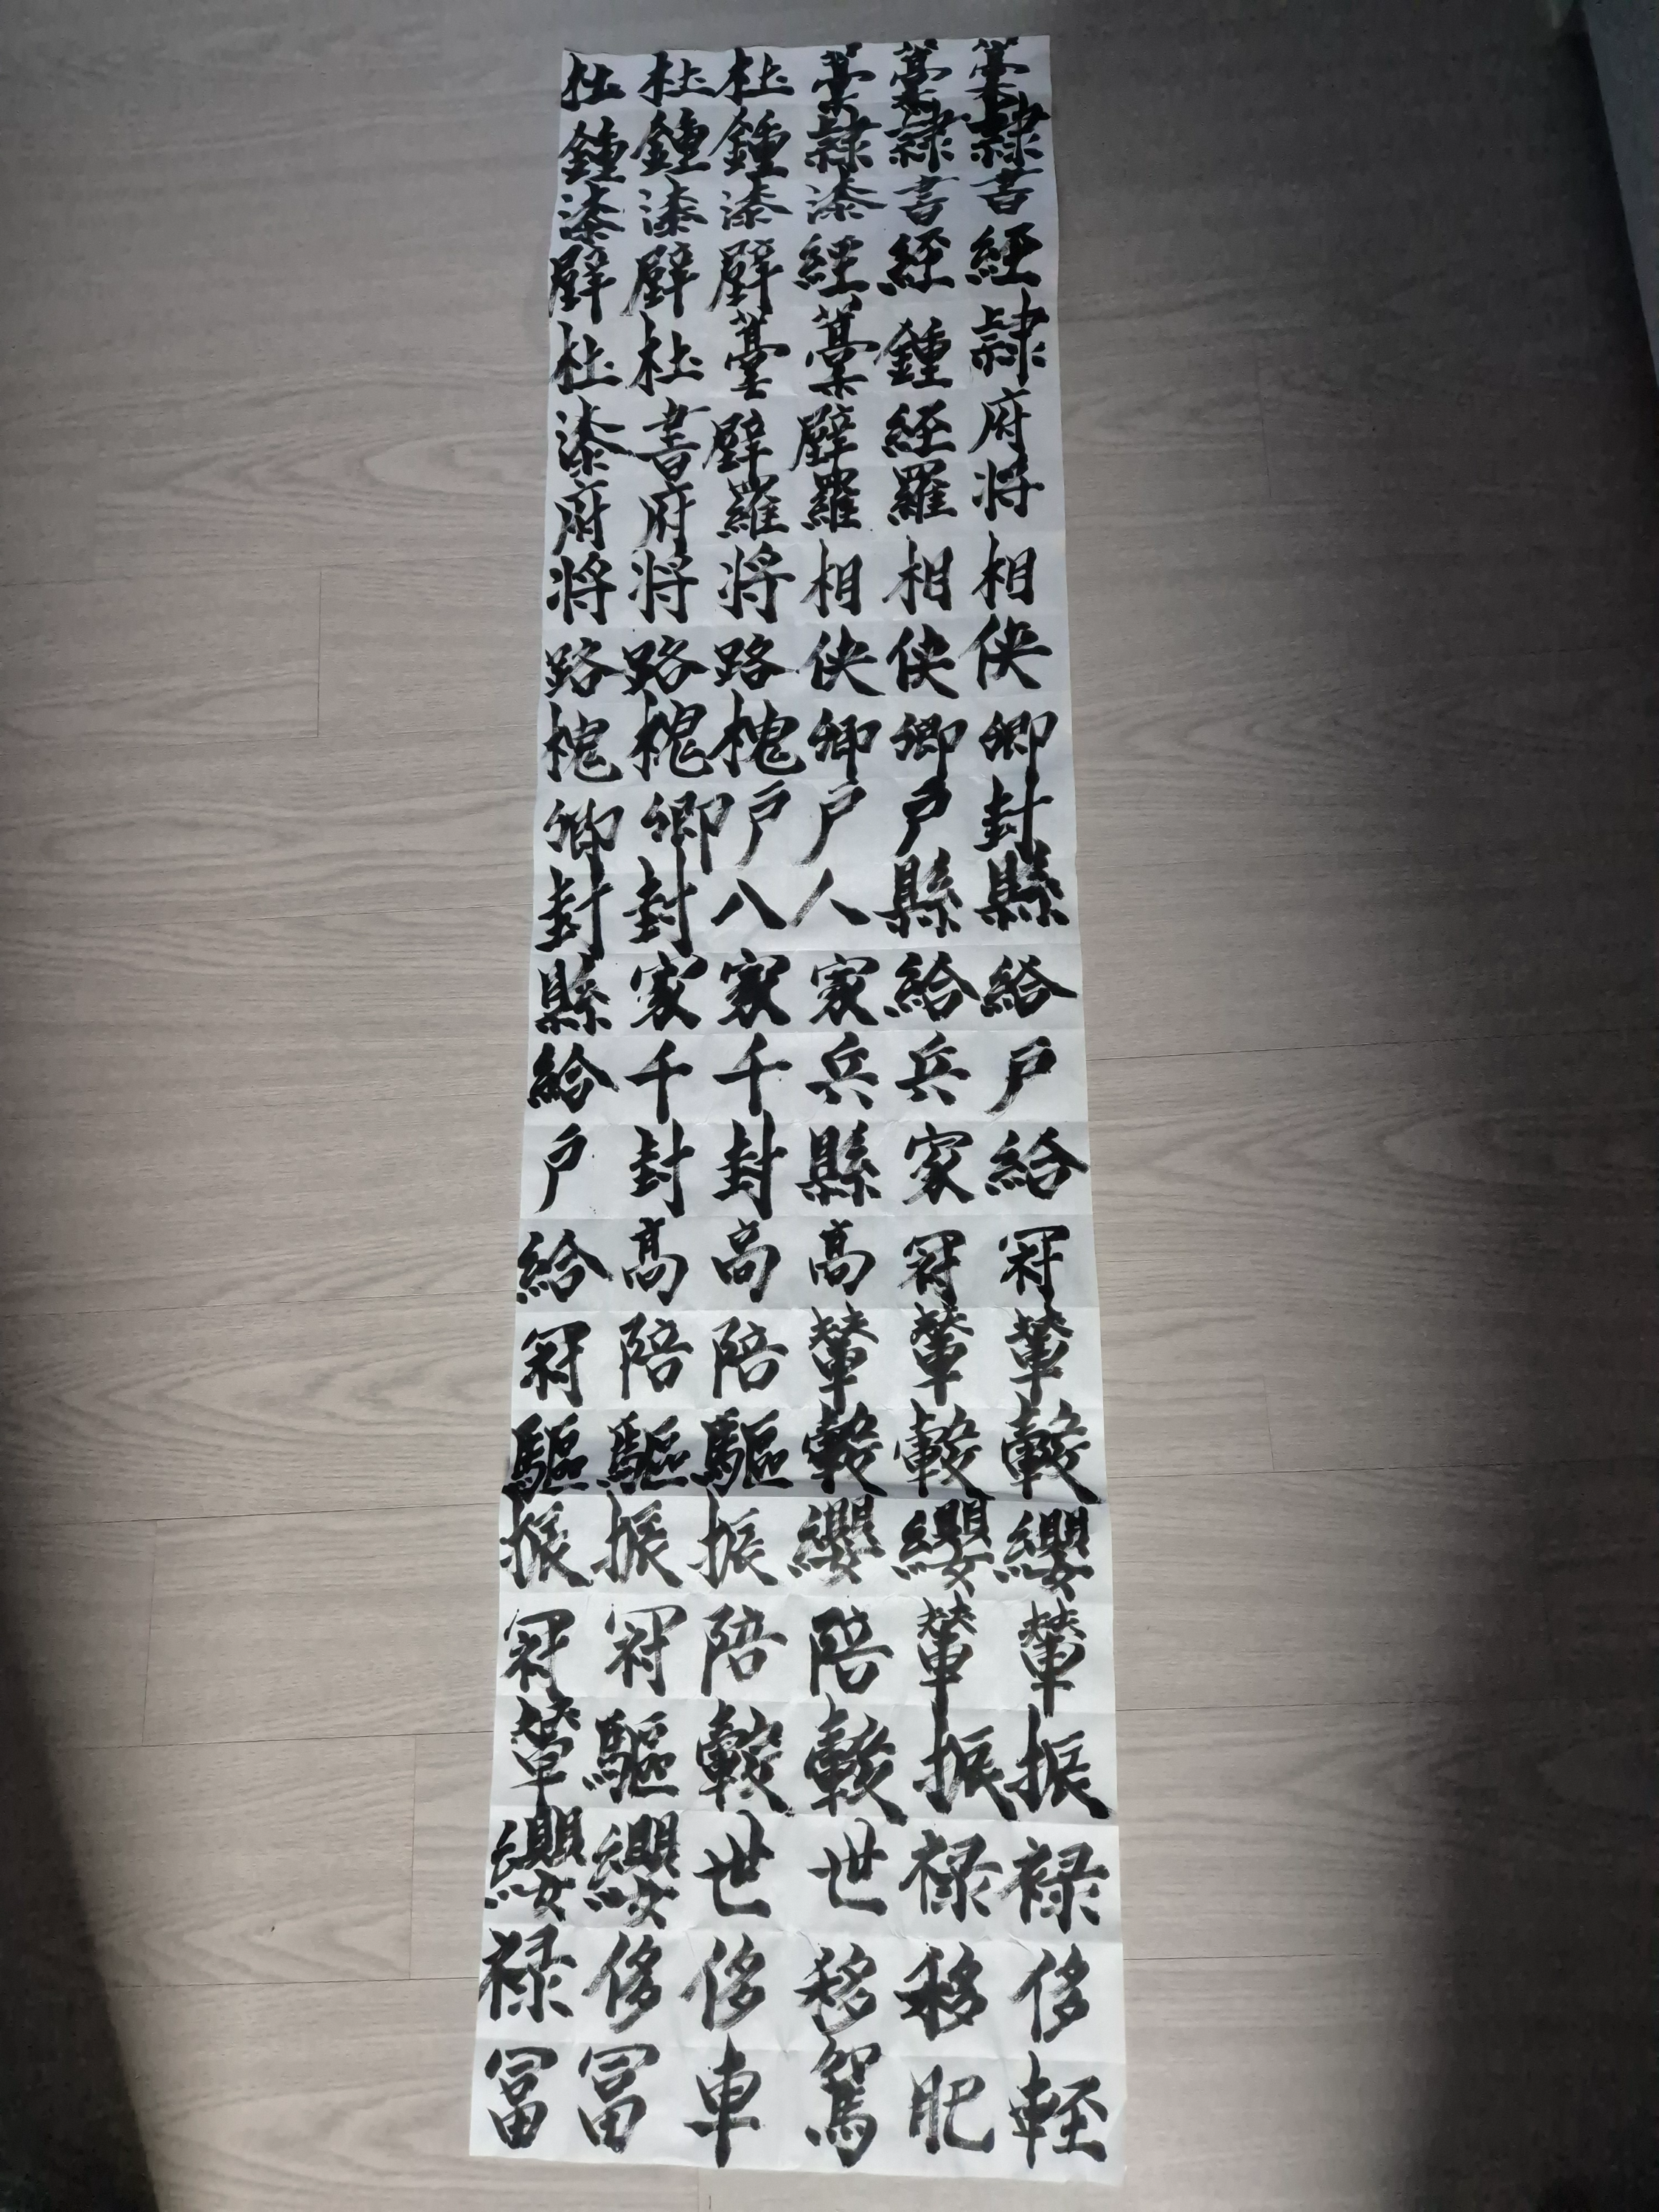 杜杜杜藁藁藁
鍾鍾鍾隸隸隸
漆漆漆漆書書
壁壁壁經經經
杜杜藁藁鍾隸
漆書壁壁經府
府府羅羅羅将
将将将相相相
路路路侠侠侠
槐槐槐卿卿卿
卿卿户户户封
封封八人縣縣
縣家家家給給
給千千兵兵户
户封封縣家給
給高高高冠冠
冠陪陪輦輦輦
驅驅驅轂轂轂
振振振纓纓纓
冠冠陪陪輦輦
輦驅轂轂振振
纓纓世世禄禄
禄侈侈移移侈
富富車駕肥輕